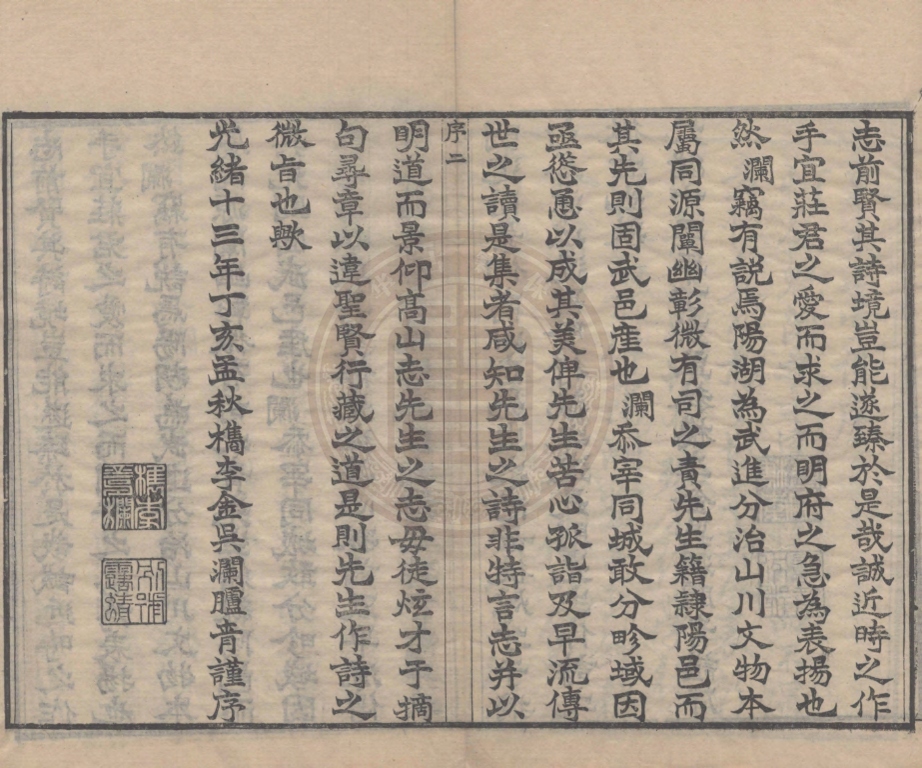 志前賢其詩境豈能遂臻於是哉誠近時之作
手宜莊君之愛而求之而明府之急為表揚也
然瀾竊有説焉陽湖為武進分治山川文物本
屬同源闡幽彰微有司之責先生籍隸陽邑而
其先則固武邑產也瀾忝宰同城敢分畛域因
亟慫恿以成其美俾先生苦心孤詣及早流傳
世之讀是集者咸知先生之詩非特言志并以
序二
明道而景仰高山志先生之志毋徒炫才于摘
句尋章以違聖賢行藏之道是則先生作詩之
微旨也歟
光緒十三年丁亥孟秋檇李金吳瀾臚青謹序